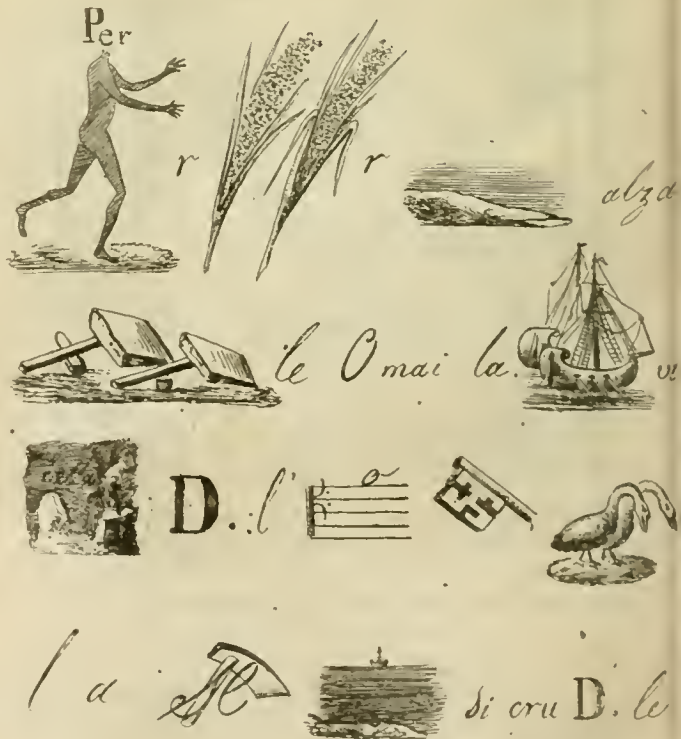 Per
r r alza
le O mai la. vi
D. l'
l a
si cru D. le